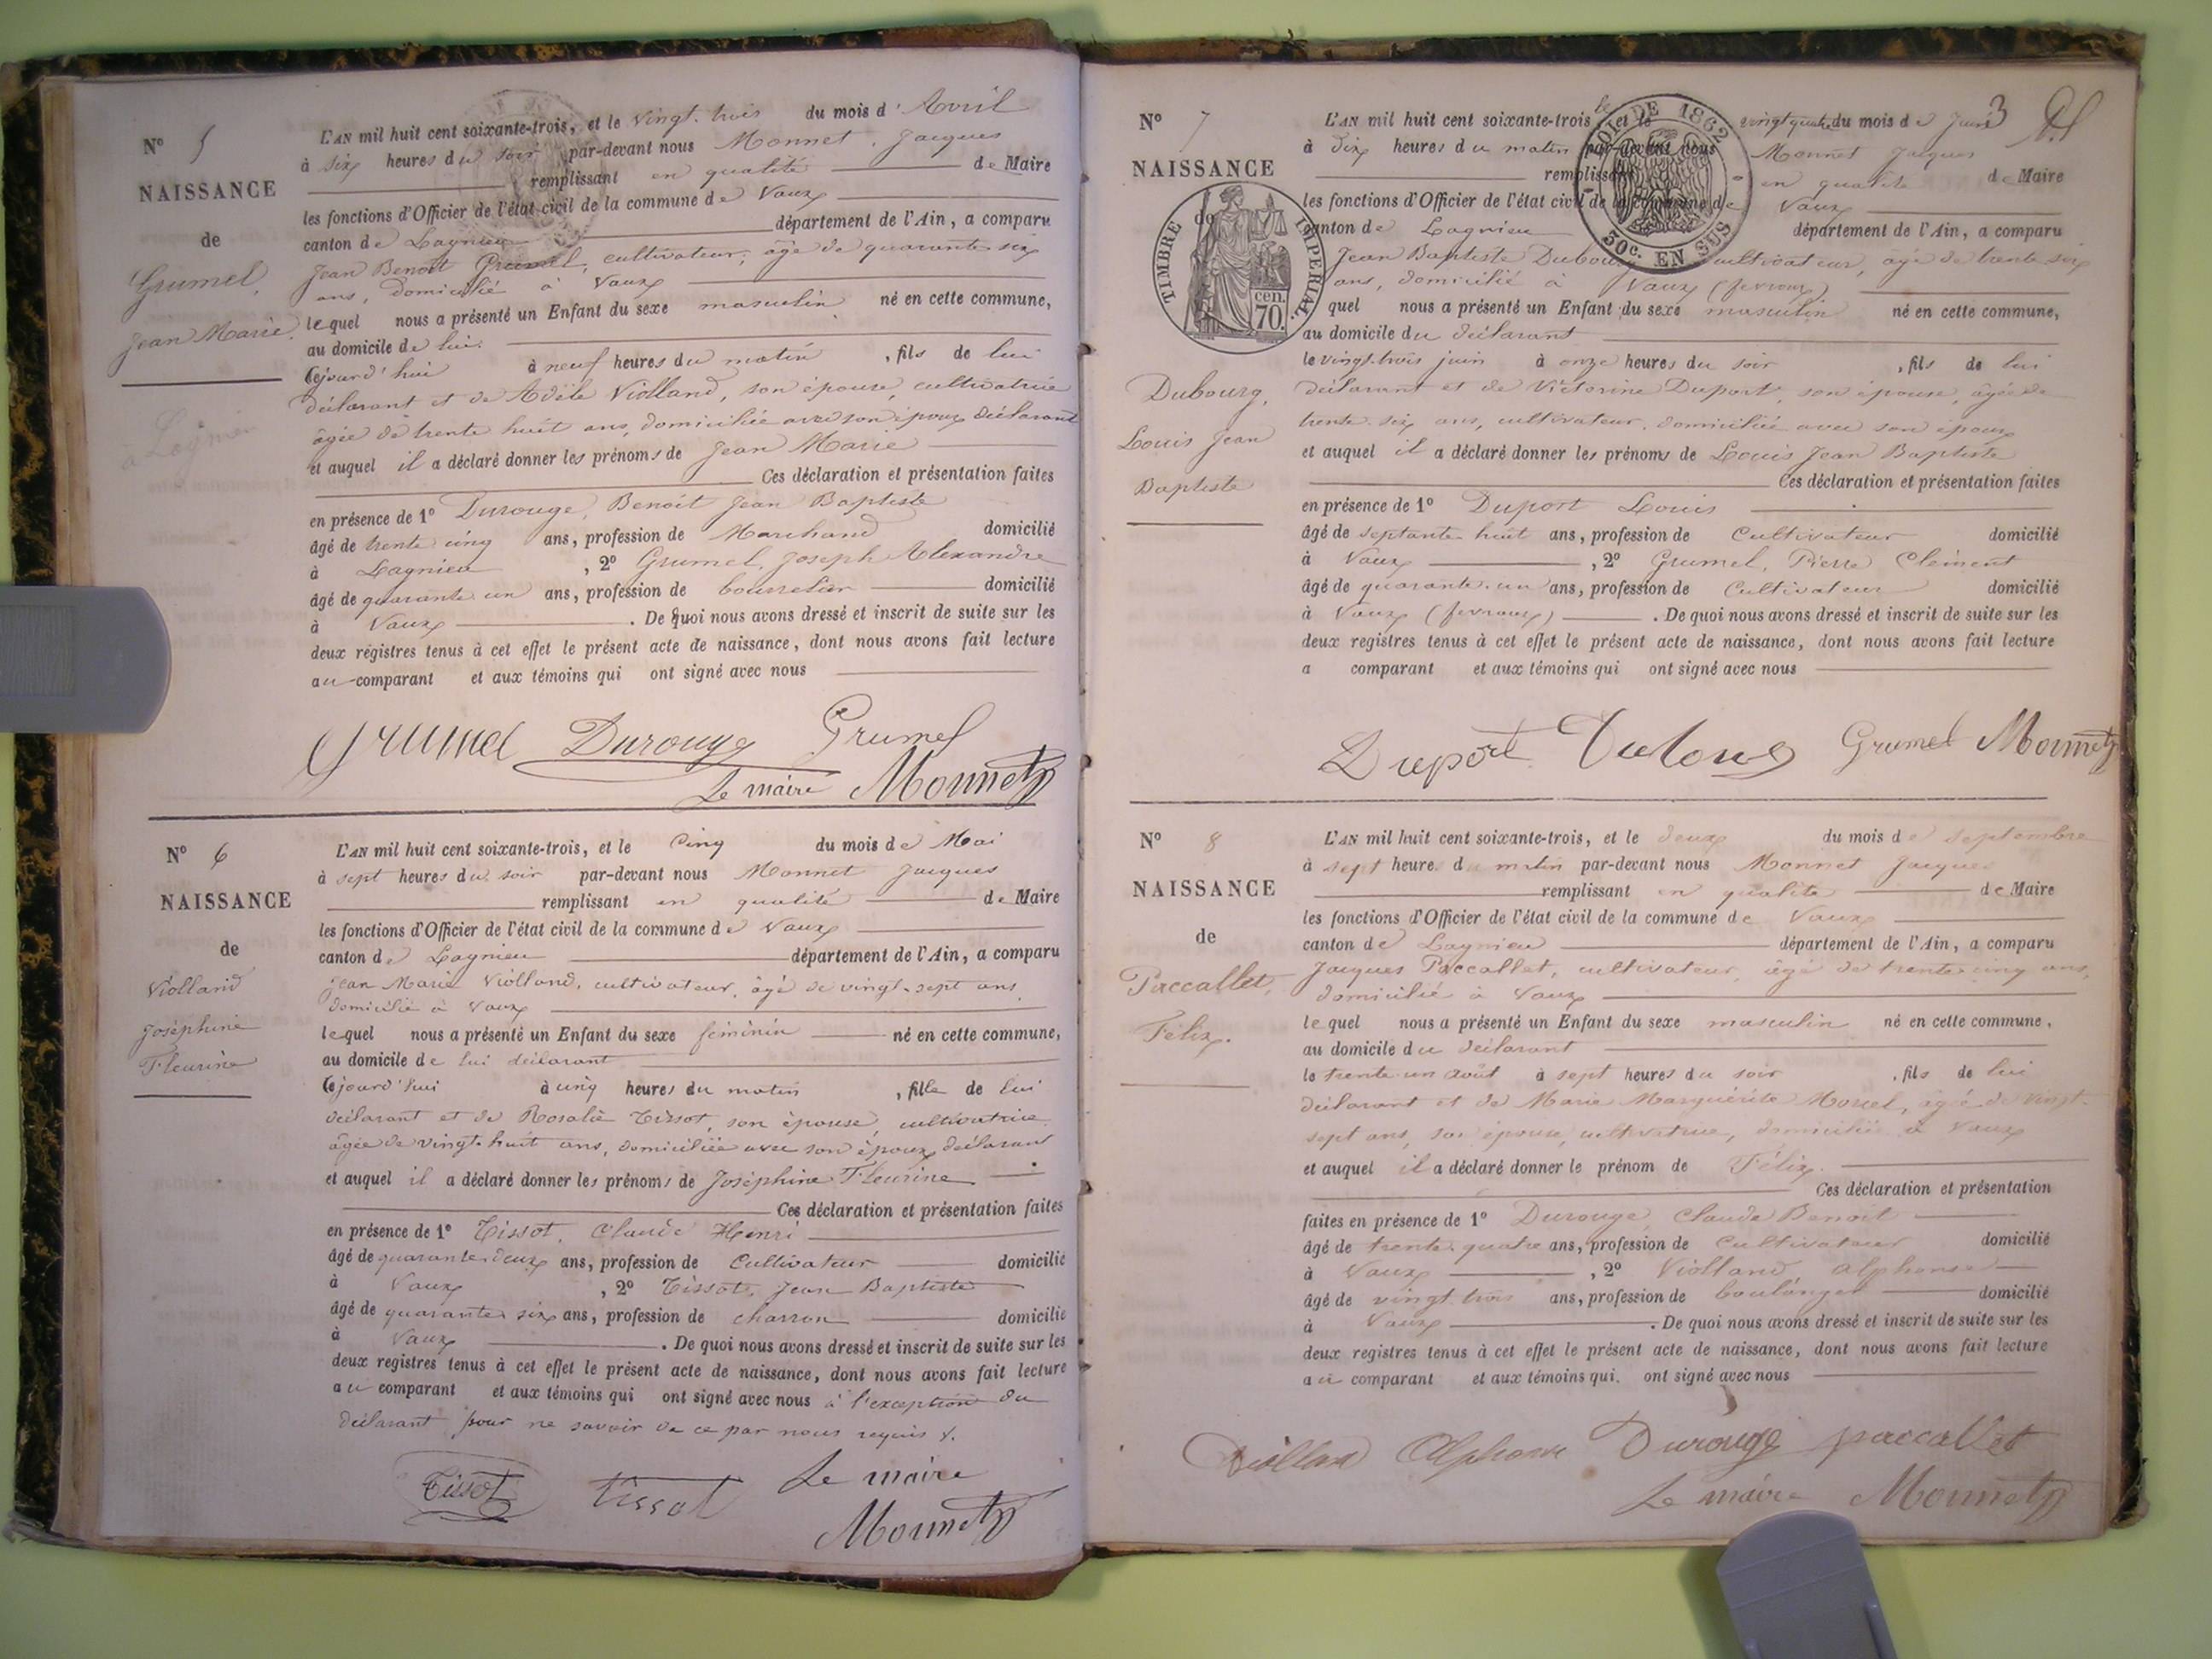 N° 5
NAISSANCE
de
Grumel,
Jean Marie.
L'AN mil huit cent soixante-trois, et le vingt-trois du mois d'Avril
à six heures du soir par-devant nous Monnet, Jacques
remplissant en qualité de Maire
les fonctions d'Officier de l'état civil de la commune de Vaux
canton de Lagnieu département de l'Ain, a comparu
Jean Benoît Grumel, cultivateur, âgé de quarante six
ans, domicilié à Vaux
lequel nous a présenté un Enfant du sexe masculin né en cette commune,
au domicile de lui
Cejourd'hui à neuf heures du matin, fils de lui
déclarant et de Adèle Violland, son épouse, cultivatrice
âgée de trente huit ans, domiciliée avec son époux déclarant
et auquel il a déclaré donner les prénoms de Jean Marie
Ces déclaration et présentation faites
en présence de 1° Durouge, Benoît Jean Baptiste
âgé de trente cinq ans, profession de Marchand domicilié
à Lagnieu, 2° Grumel, Joseph Alexandre
âgé de quarante un ans, profession de bourrelier domicilié
à Vaux. De quoi nous avons dressé et inscrit de suite sur les
deux registres tenus à cet effet le présent acte de naissance, dont nous avons fait lecture
au comparant et aux témoins qui ont signé avec nous
Grumel Durouge Grumel
Le maire Monnet
N° 6
NAISSANCE
de
Violland
Joséphine
Fleurine
L'AN mil huit cent soixante-trois, et le Cinq du mois de Mai
à sept heures du soir par-devant nous Monnet Jacques
remplissant en qualité de Maire
les fonctions d'Officier de l'état civil de la commune de Vaux
canton de Lagnieu département de l'Ain, a comparu
Jean Marie Violland, cultivateur, âgé de vingt-sept ans
domicilié à Vaux
lequel nous a présenté un Enfant du sexe féminin né en cette commune,
au domicile de lui déclarant
Cejourd'hui à cinq heures du matin, fille de lui
déclarant et de Rosalie Tissot, son épouse, cultivatrice
âgée de vingt-huit ans, domiciliée avec son époux déclarant
et auquel il a déclaré donner les prénoms de Joséphine Fleurine
Ces déclaration et présentation faites
en présence de 1° Tissot, Claude Henri
âgé de quarante-deux ans, profession de Cultivateur domicilié
à Vaux, 2° Tissot, Jean Baptiste
âgé de quarante six ans, profession de charron domicilié
à Vaux. De quoi nous avons dressé et inscrit de suite sur les
deux registres tenus à cet effet le présent acte de naissance, dont nous avons fait lecture
au comparant et aux témoins qui ont signé avec nous à l'exception du
déclarant pour ne savoir de ce par nous requis
Tissot Tissot Le maire
Monnet
N° 7
NAISSANCE
TIMBRE IMPERIAL.
70. cen.
de
Dubourg,
Louis Jean
Baptiste
LOI DE 1862
30c. EN SUS
3
L'AN mil huit cent soixante-trois et le vingt quatre du mois de Juin
à dix heures du matin par-devant nous Monnet Jacques
remplissant en qualité de Maire
les fonctions d'Officier de l'état civil de la commune de Vaux
canton de Lagnieu département de l'Ain, a comparu
Jean Baptiste Dubourg cultivateur, âgé de trente six
ans, domicilié à Vaux (fevroux)
quel nous a présenté un Enfant du sexe masculin né en cette commune,
au domicile du déclarant
le vingt-trois juin à onze heures du soir, fils de lui
déclarant et de Victorine Duport, son épouse, âgée de
trente six ans, cultivateur, domiciliée avec son époux
et auquel il a déclaré donner les prénoms de Louis Jean Baptiste
Ces déclaration et présentation faites
en présence de 1° Duport Louis
âgé de septante huit ans, profession de Cultivateur domicilié
à Vaux, 2° Grumel, Pierre Clément
âgé de quarante-un ans, profession de Cultivateur domicilié
à Vaux (fevroux). De quoi nous avons dressé et inscrit de suite sur les
deux registres tenus à cet effet le présent acte de naissance, dont nous avons fait lecture
a comparant et aux témoins qui ont signé avec nous
Duport Dubourg Grumel Monnet
N° 8
NAISSANCE
de
Paccallet,
Félix.
L'AN mil huit cent soixante-trois, et le deux du mois de septembre
à sept heure du matin par-devant nous Monnet Jacques
remplissant en qualité de Maire
les fonctions d'Officier de l'état civil de la commune de Vaux
canton de Lagnieu département de l'Ain, a comparu
Jacques Paccallet, cultivateur, âgé de trente cinq ans,
domicilié à Vaux
lequel nous a présenté un Enfant du sexe masculin né en cette commune,
au domicile du déclarant
le trente-un août à sept heures du soir, fils de lui
déclarant et de Marie Marguérite Morel, âgée de vingt-
sept ans, son épouse, cultivatrice, domiciliée à Vaux
et auquel il a déclaré donner le prénom de Félix.
Ces déclaration et présentation
faites en présence de 1° Durouge, Claude Benoît
âgé de trente-quatre ans, profession de Cultivateur domicilié
à Vaux, 2° Violland Alphonse
âgé de vingt-trois ans, profession de boulanger domicilié
à Vaux. De quoi nous avons dressé et inscrit de suite sur les
deux registres tenus à cet effet le présent acte de naissance, dont nous avons fait lecture
au comparant et aux témoins qui. ont signé avec nous
Viollan Alphonse Durouge paccallet
Le maire Monnet